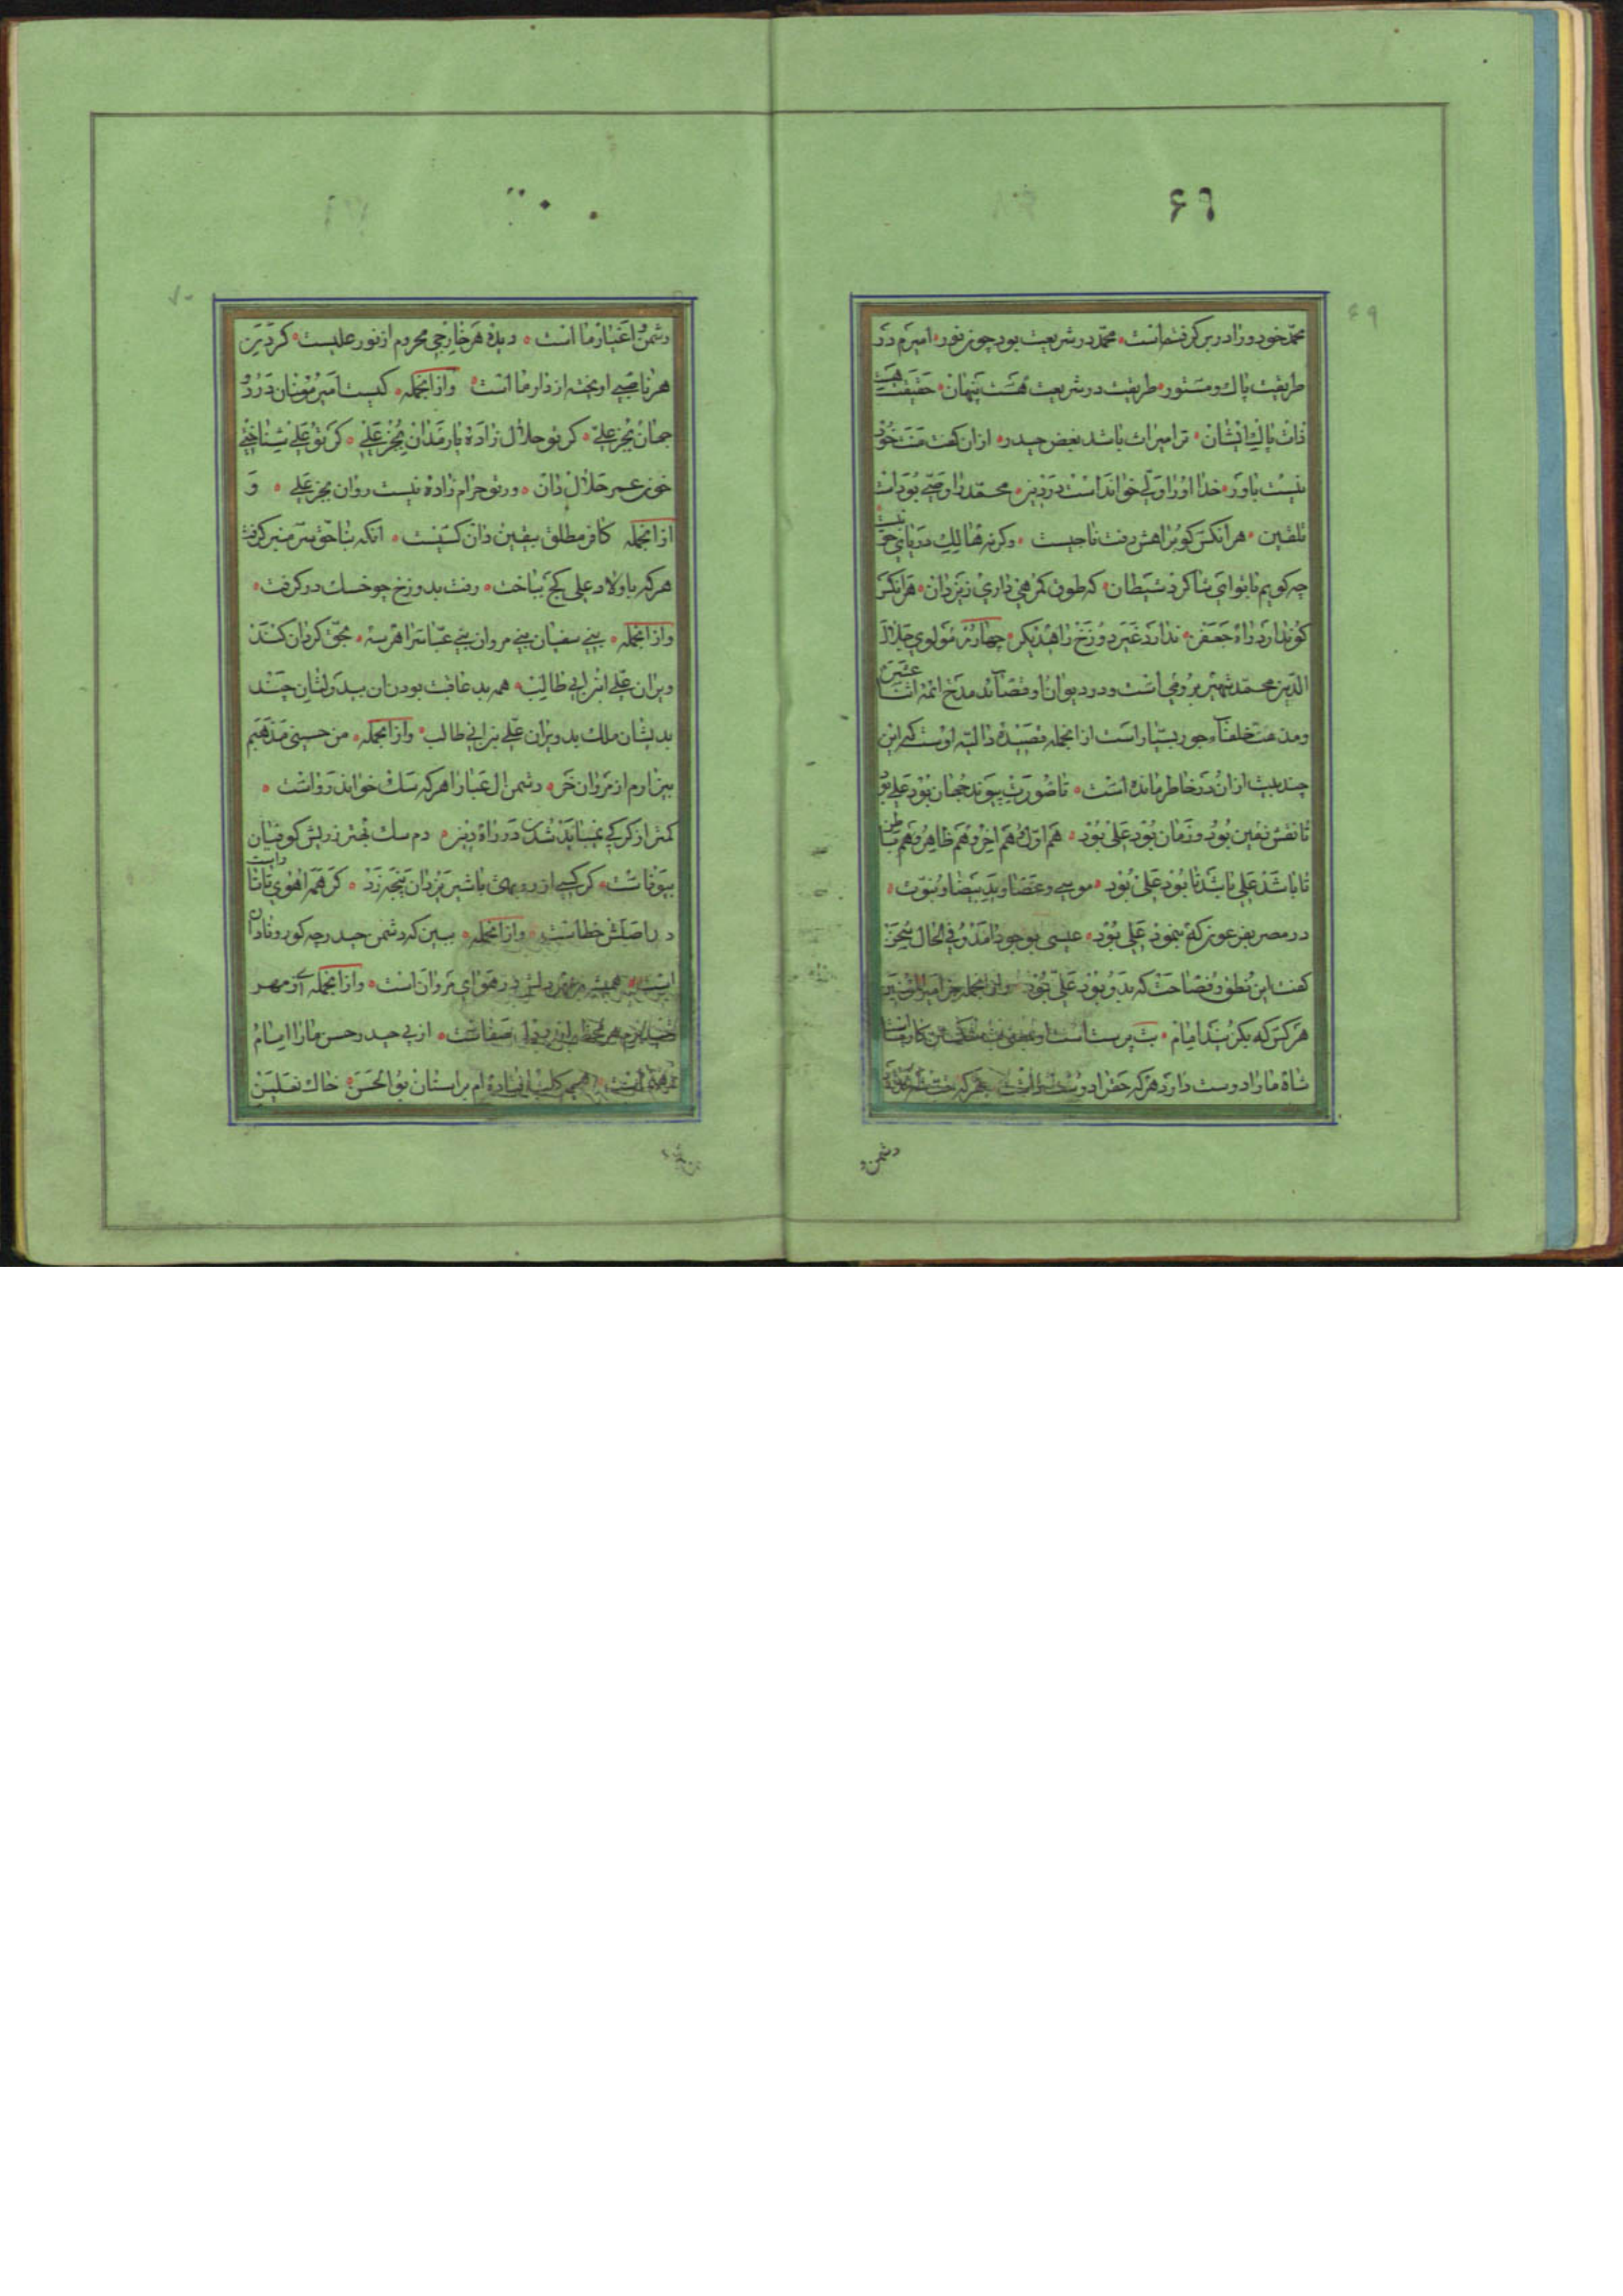 ۶۹
۶۹
محمد خود ورا در بر کرفته است محمد در شریعت بود چون نور امیرم در
طریقت پاک و مستور طریقت در شریعت هست پنهان حقیقت هست
ذات پاک ایشان ترا میراث باشد بغض حیدر ازان کفت منت خود
نیست باور خدا اورا ولی خوانداست در دین محمد را وصی بود ان
تلقین هر انکس کو براهش رفت ناجیست وکرنه هالک دریای حق نیست
چه کویم با تو ای شاکرد شیطان که طوق کمرهی داری ز یزدان هر انکس
کو ندارد راه جعفر ندارد غیر دوزخ راه دیکر چهارم مولوی جلال
الدین محمد شهیر برومی است ودر دیوان او قصاید مدح ائمه اثنا عشر
ومذمت خلفاء جور بسیار است از انجمله قصیده دالیه اوست که این
چند بیت ازان در خاطر مانده است تا صورت پیوند جهان بود علی بود
تا نقش زمین بود و زمان بود علی بود هم اول و هم اخر و هم ظاهر و هم باطن
تا باشد علی باشد تا بود علی بود موسی وعصا وید بیضا ونبوت
در مصر بفرعون که بنمود علی بود عیسی بوجود امد و فی الحال سخن
کفت این نطق و فصاحت که بدو بود علی بود وازانجمله جز امیر المؤمنین
هر کس که بکزیند امام بت پرست است او
شاه مارا دوست دارد هر که حق را دوست
دشمن
۷۰
دشمن اغیار ما است دیده هر خارجی محروم از نور علیست کردن
هر ناصبی اویخته از دار ما است وازانجمله کیست امیر مؤمنان در دو
جهان بجز علی کر تو حلال زاده یار مدان بجز علی کر تو علی شناختی
خون عمر حلال دان ور تو حرام زاده نیست روان بجز علی و
ازانجمله کافر مطلق بیقین دان کسیت انکه بناحق سر منبر کرفت
هر که با ولاد علی کج بباخت رفت بدوزخ چو خسک در کرفت
وازانجمله بنی سفیان بنی مروان بنی عباس را هر سه بحق کردان کنند
ویران علی ابن ابی طالب همه بد عاقبت بودند
بدیشان ملک بد ویران علی بن ابی طالب وازانجمله من حسینی مذهبم
بیزارم از مروان خر دشمن ال عبا را هر که سک خواند رواست
کمتر از کرکی نمیباید شدن در راه دین دم سک بهتر ز ریش کوفیان
بیوفاست کر کسی از روبهی با شیر یزدان پنجه زد کر همه اهوی تاتار است
در اصلش خطاست وازانجمله ببین که دشمن حیدر چه کور و نادان
است همیشه در هوای مروان است وازانجمله ای زمهر
صفاست از پی حیدر حسن مارا امام
رهنماست همچو کلب افتاده ام بر استان بو الحسن خاک نعلین